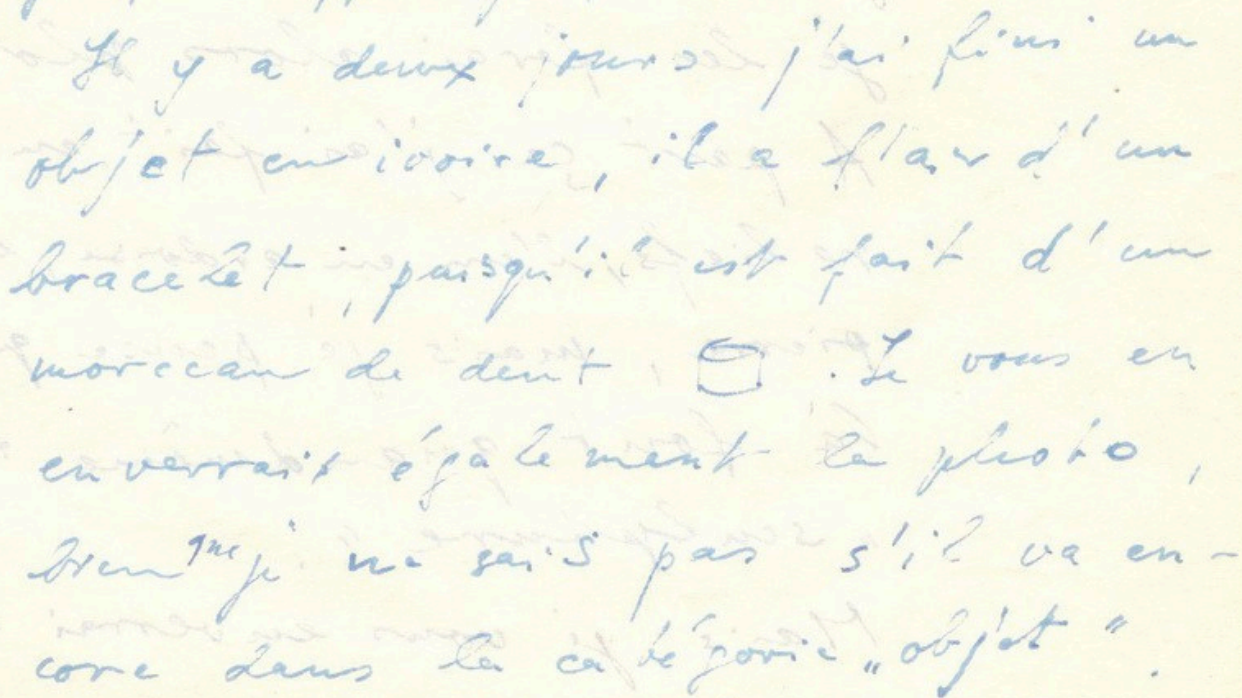 Il y a deux jours j'ai fini un
objet en ivoire, il a l'air d'un
bracelet, puisqu'il est fait d'un
morceau de dent . Je vous en
enverrais également la photo,
bien que je ne sais pas s'il va en-
core dans la catégorie „objet".